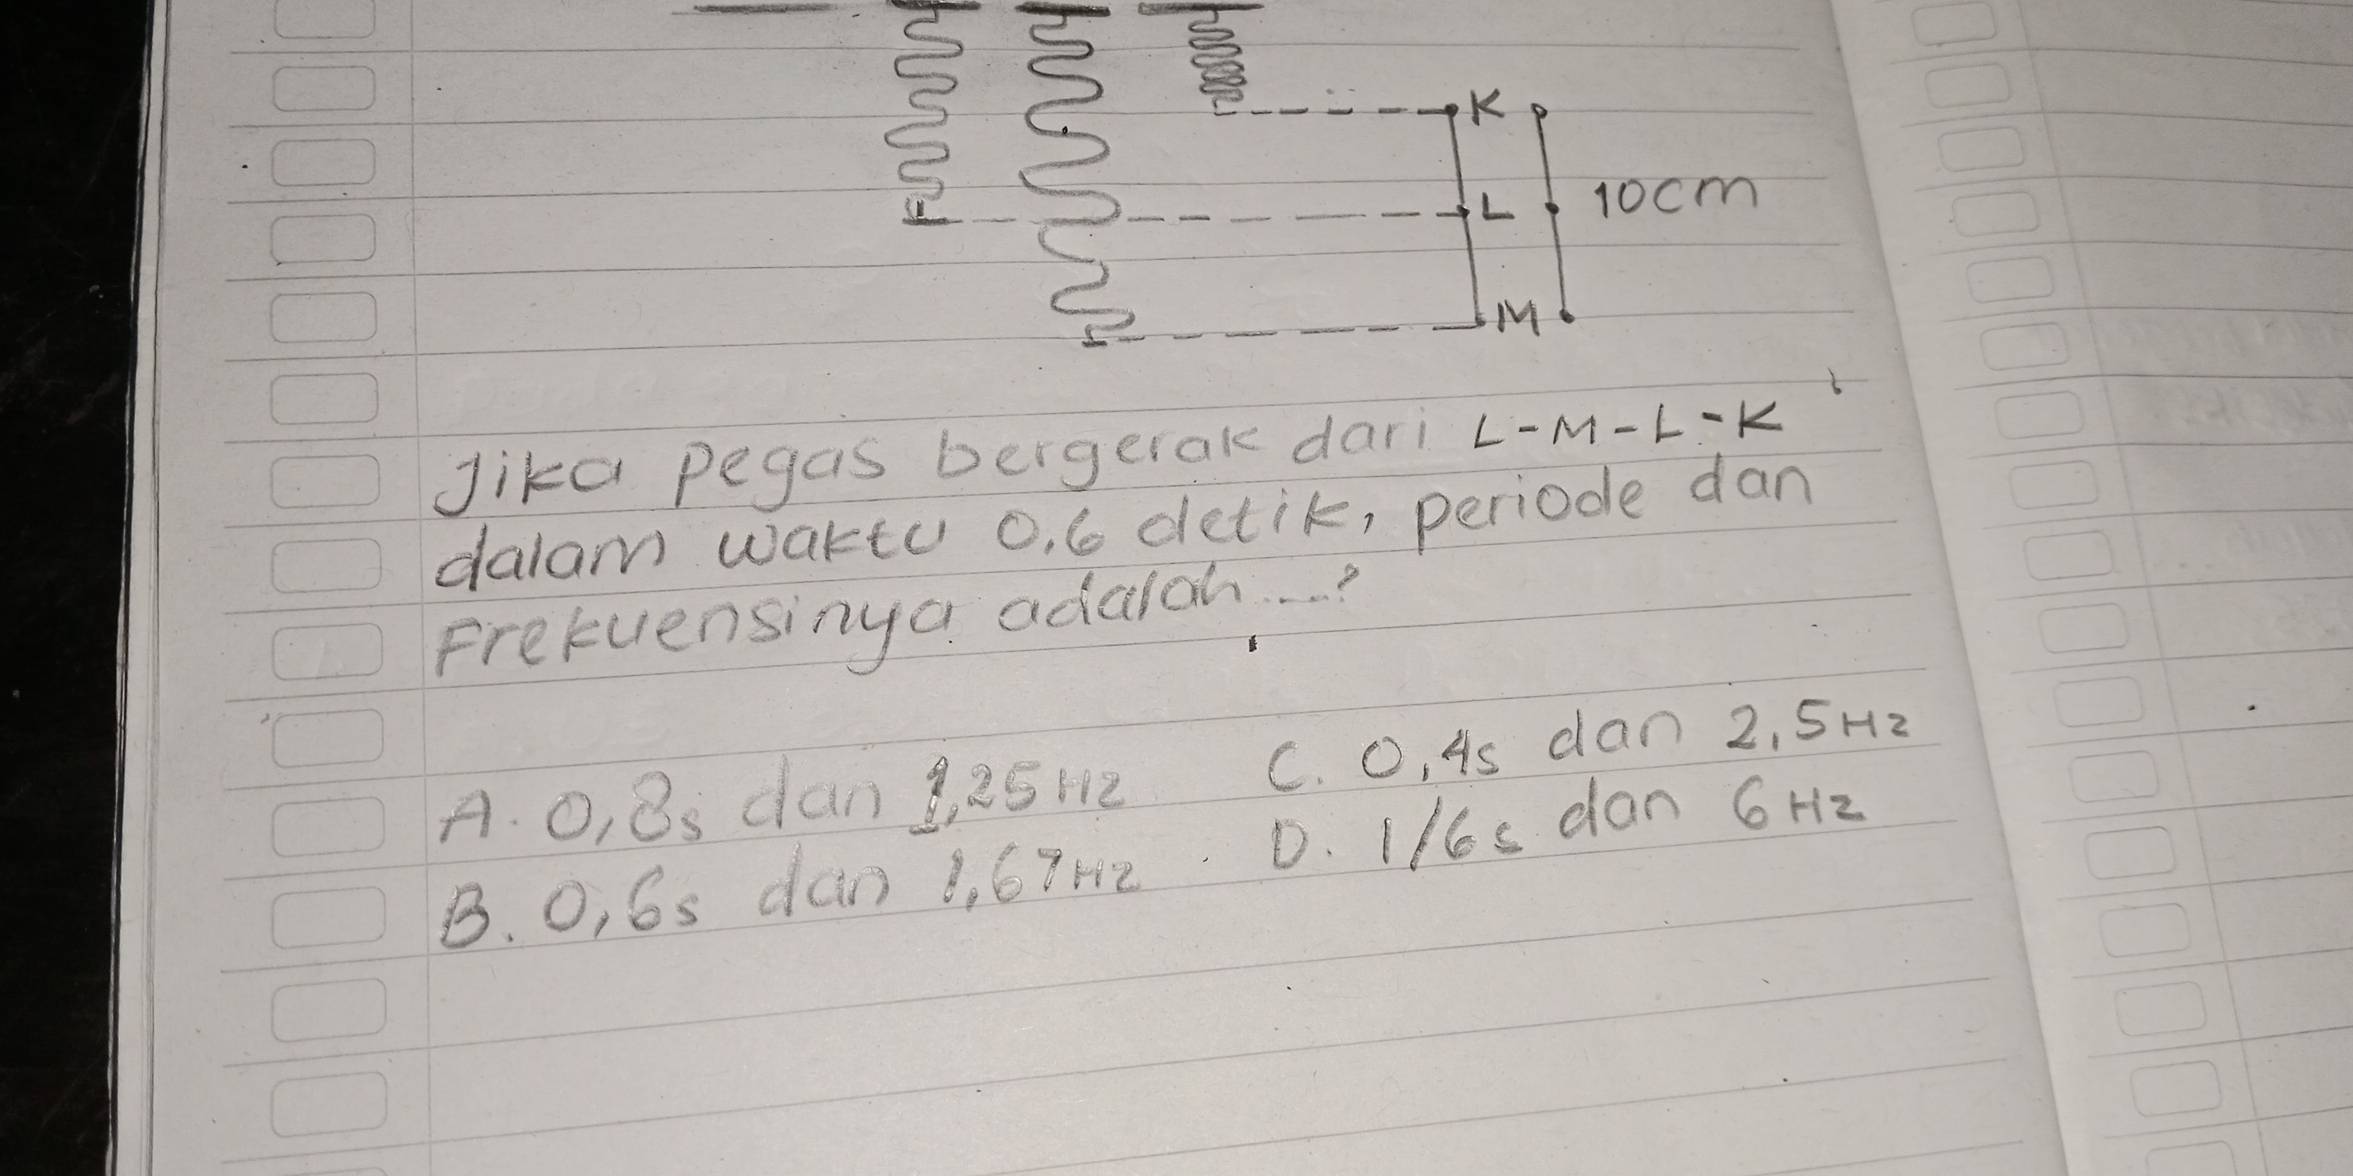 K
L
10cm
M
Jika pegas bergerak dari L-M-L-K
dalam waktu 0.6 detik, periode dan
Frekuensinya adalah....?
A. 0,8s dan 1,25Hz
B. 0,6s dan 1,67Hz
C. 0,4s dan 2,5Hz
D. 1/6s dan 6Hz